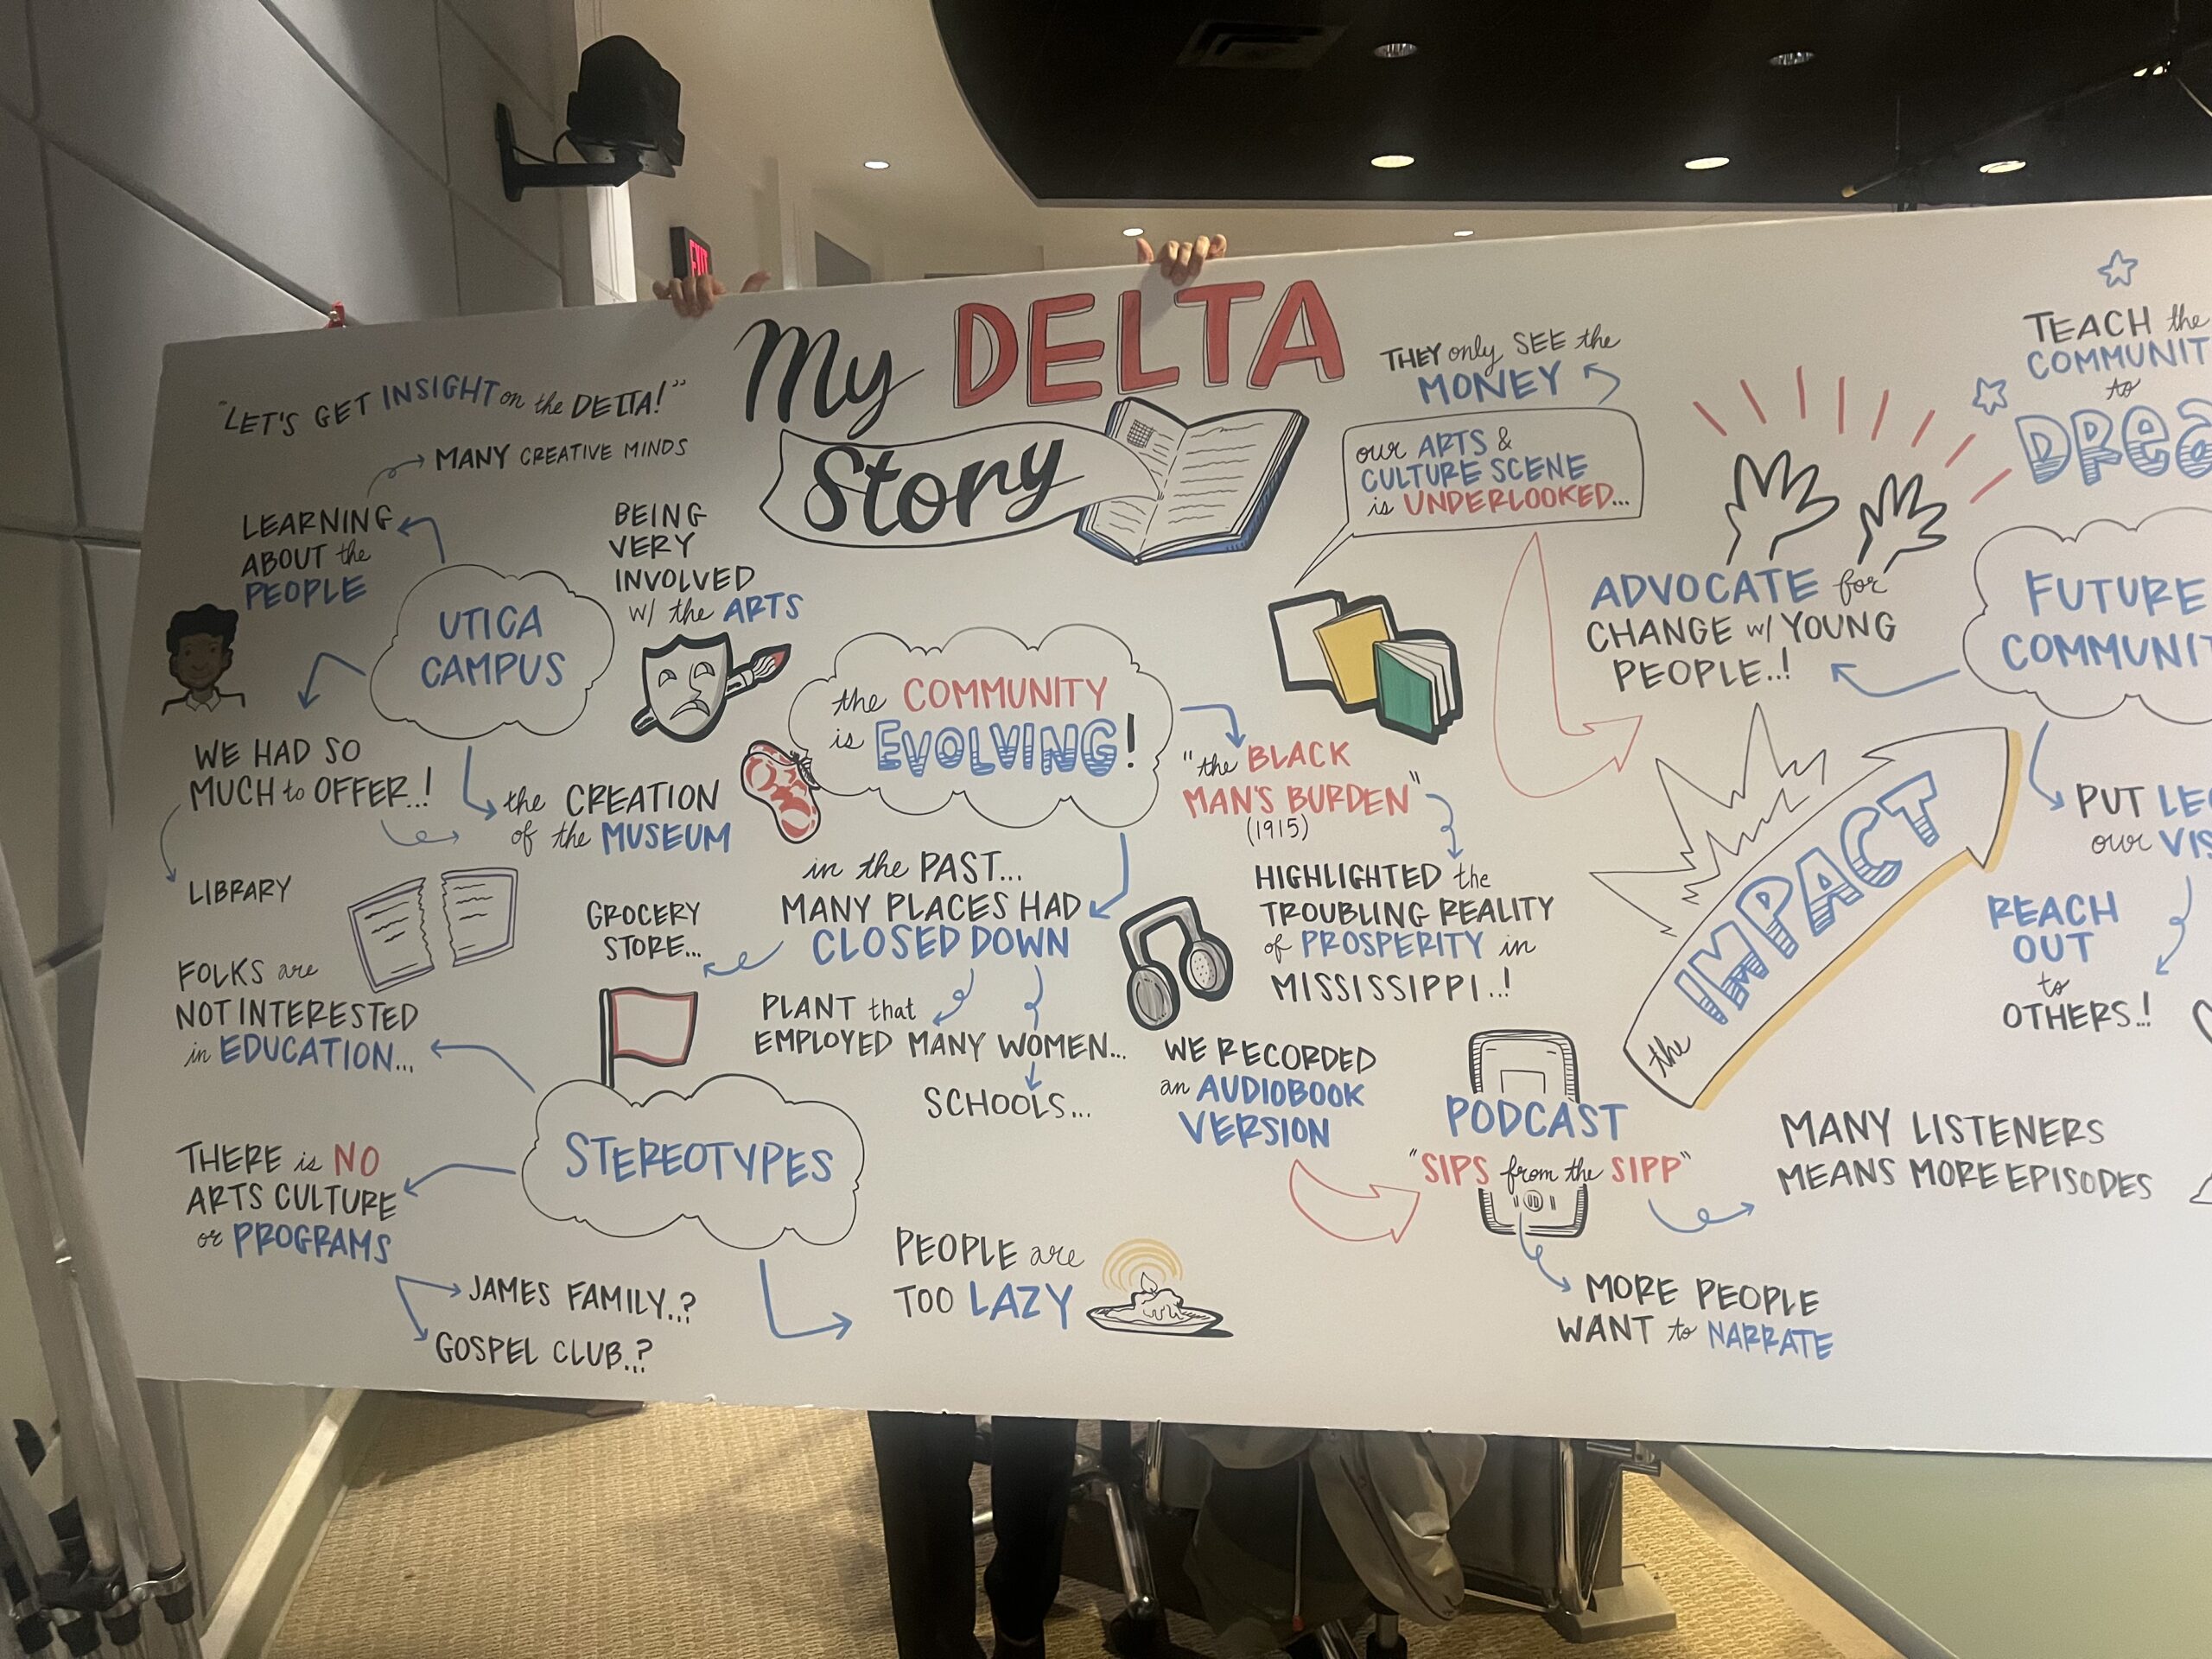 EXIT
My DELTA
Story
"LET'S GET INSIGHT on the DELTA!"
MANY CREATIVE MINDS
LEARNING
ABOUT the
PEOPLE
UTICA
CAMPUS
BEING
VERY
INVOLVED
w/ the ARTS
WE HAD SO
MUCH to OFFER..!
LIBRARY
the CREATION
of the MUSEUM
the COMMUNITY
is EVOLVING!
in the PAST...
MANY PLACES HAD
CLOSED DOWN
GROCERY
STORE...
PLANT that
EMPLOYED MANY WOMEN...
SCHOOLS...
FOLKS are
NOT INTERESTED
in EDUCATION...
STEREOTYPES
THERE is NO
ARTS CULTURE
or PROGRAMS
JAMES FAMILY..?
GOSPEL CLUB..?
PEOPLE are
TOO LAZY
THEY only SEE the
MONEY
our ARTS &
CULTURE SCENE
is UNDERLOOKED...
"the BLACK
MAN'S BURDEN"
(1915)
HIGHLIGHTED the
TROUBLING REALITY
of PROSPERITY in
MISSISSIPPI..!
WE RECORDED
an AUDIOBOOK
VERSION
PODCAST
"SIPS from the SIPP"
MORE PEOPLE
WANT to NARRATE
MANY LISTENERS
MEANS MORE EPISODES
the IMPACT
ADVOCATE for
CHANGE w/ YOUNG
PEOPLE..!
TEACH the
COMMUNIT
to
DREA
FUTURE
COMMUNIT
PUT LE
our VIS
REACH
OUT
to
OTHERS..!